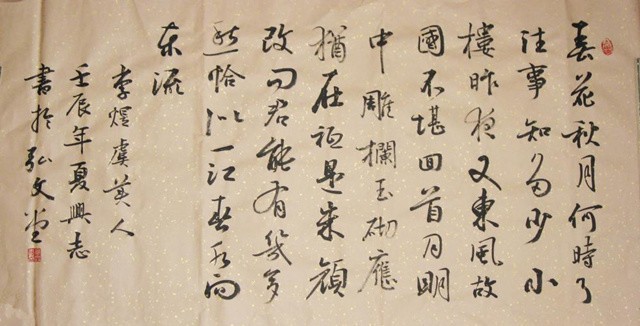 春花秋月何時了
往事知多少小
樓昨夜又東風故
國不堪回首月明
中雕欄玉砌應
猶在祗是朱顏
改问君能有幾多
愁恰似一江春水向
东流
李煜虞美人
壬辰年夏興志
書於弘文堂